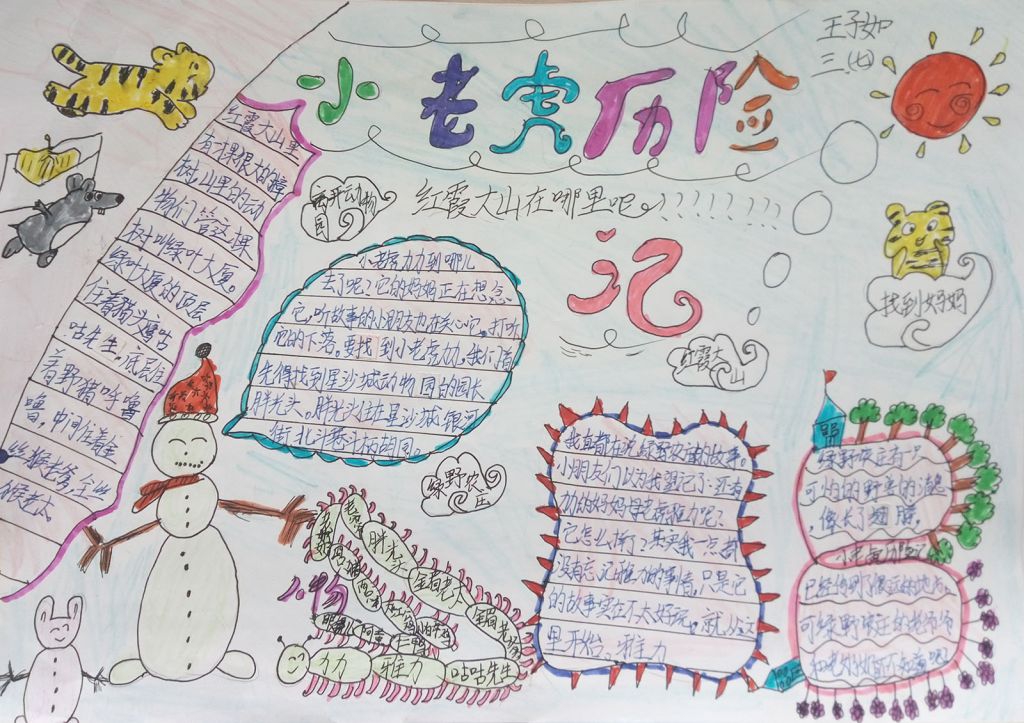 小老虎历险
记
王子如
三(七)
离开动物
园
红霞大山在哪里呢
找到妈妈
红霞大
山
绿野农
庄
红霞大山里
有一棵很大的
树,山里的动
物们管这棵
树叫绿叶大厦。
绿叶大厦的顶层
住着猫头鹰咕
咕先生,底层住
着野猪呼噜
噜,中间住着金
丝猴老爷金丝
猴老太
小老虎力力到哪儿
去了呢?它的妈妈正在想念
它,听故事的小朋友也在关心它。打听
它的下落,要找到小老虎力力,我们得
先得找到星沙城动物园的园长
胖光头。胖光头住在星沙城银河
街北斗
胡同。
我一直都在说绿野农庄的故事。
小朋友们以为我忘记了还有
力力的妈妈母老虎雅力呢?
它怎么样了?其实我一点都
没有忘记雅力的事情,只是它
的故事实在不太好玩。就从这
里开始。雅力
绿野农庄有一只
可怕的野兽的消息
像长了翅膀,
小老虎历险记
已经传到了很远的地方
可绿野农庄的老师
和老奶奶都不知道呢?
人物
力力
雅力
咕咕先生